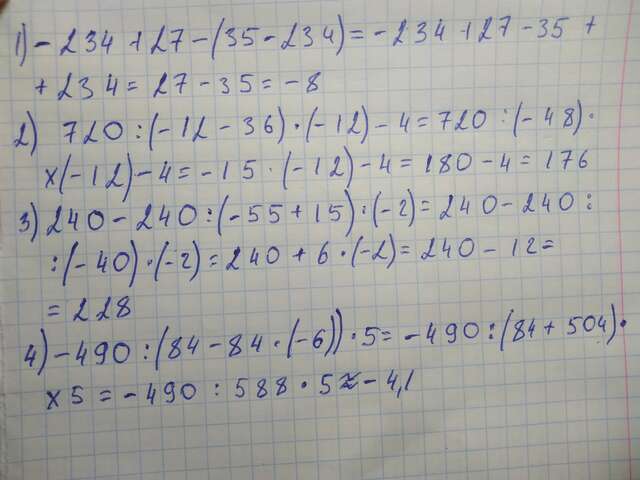 1) - 234 + 27 - (35 - 234) = - 234 + 27 - 35 +
+ 234 = 27 - 35 = - 8
2) 720 : (- 12 - 36) · (- 12) - 4 = 720 : (- 48) ·
x (- 12) - 4 = - 15 · (- 12) - 4 = 180 - 4 = 176
3) 240 - 240 : (- 55 + 15) · (- 2) = 240 - 240 :
: (- 40) · (- 2) = 240 + 6 · (- 2) = 240 - 12 =
= 228
4) - 490 : (84 - 84 · (- 6)) · 5 = - 490 : (84 + 504) ·
x 5 = - 490 : 588 · 5 ≈ - 4,1